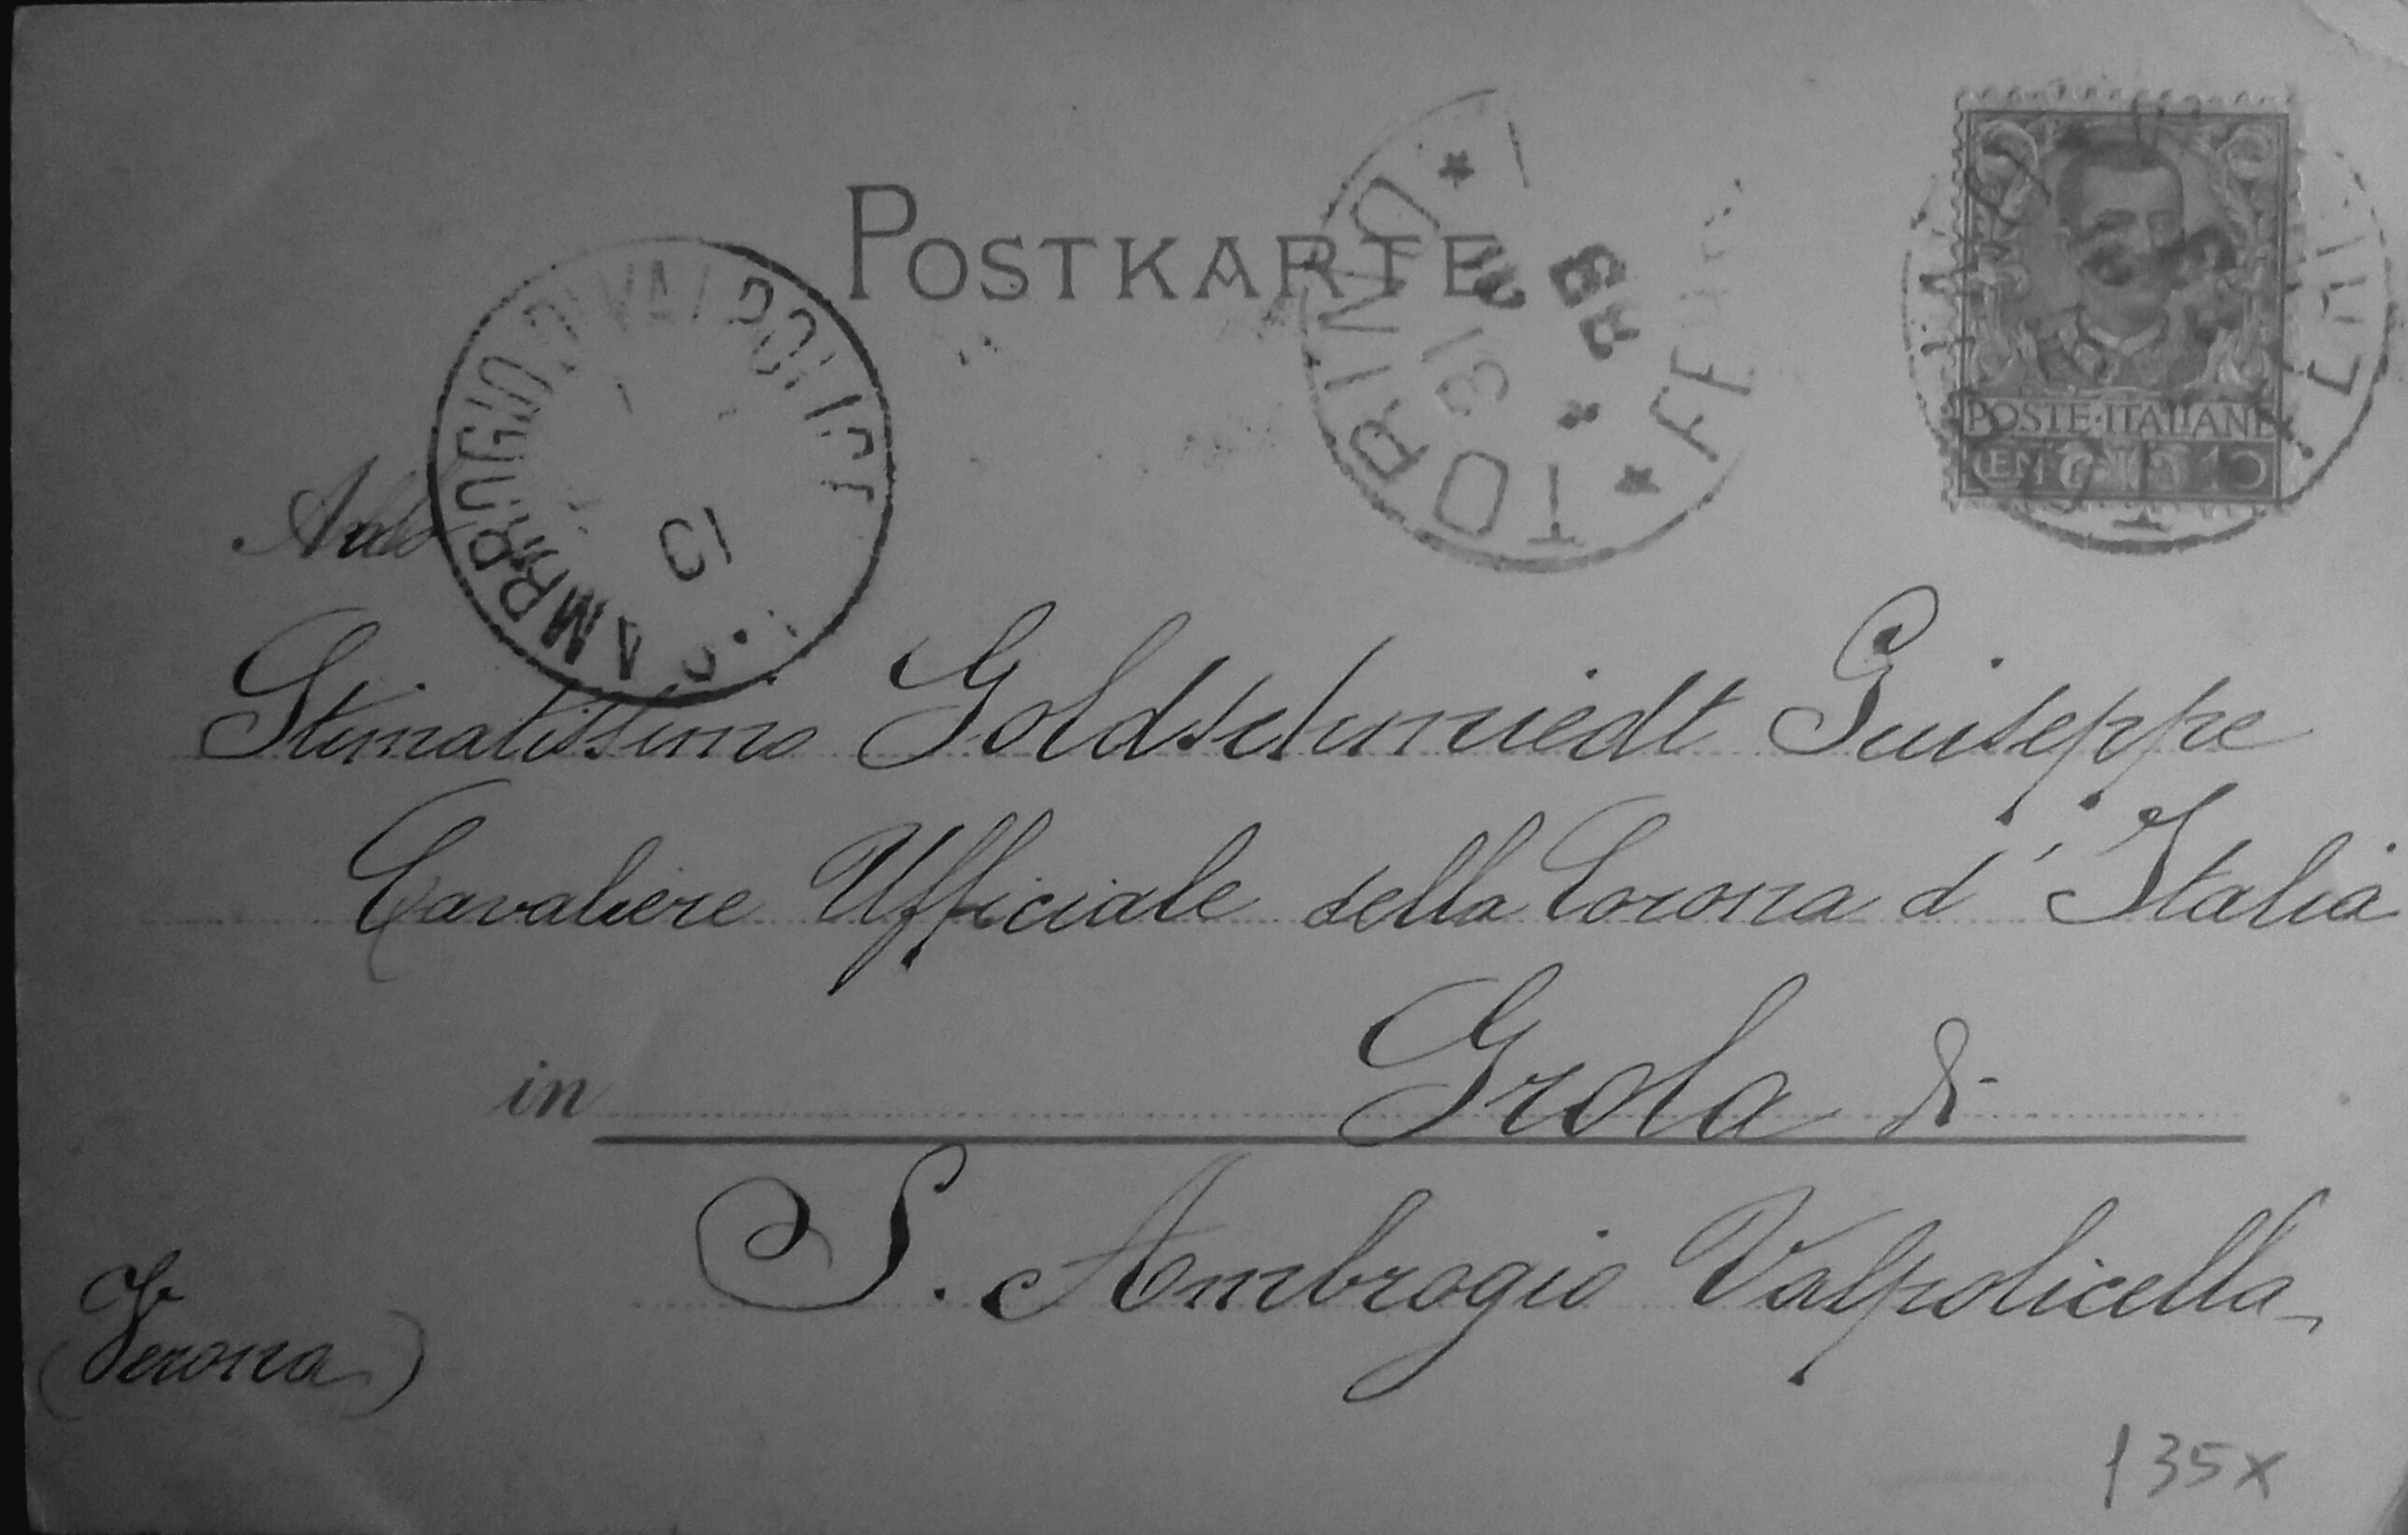 POSTKARTE
S. AMBROGIO DI VALPOLICE
10
TORINO * FE
31
POSTE·ITALIANE
CENT 10
Stimatissimo Goldschmiedt Guiseppe
Cavaliere Ufficiale della Corona d'Italia
in Grola di
S. Ambrogio Valpolicella
(Verona)
135x